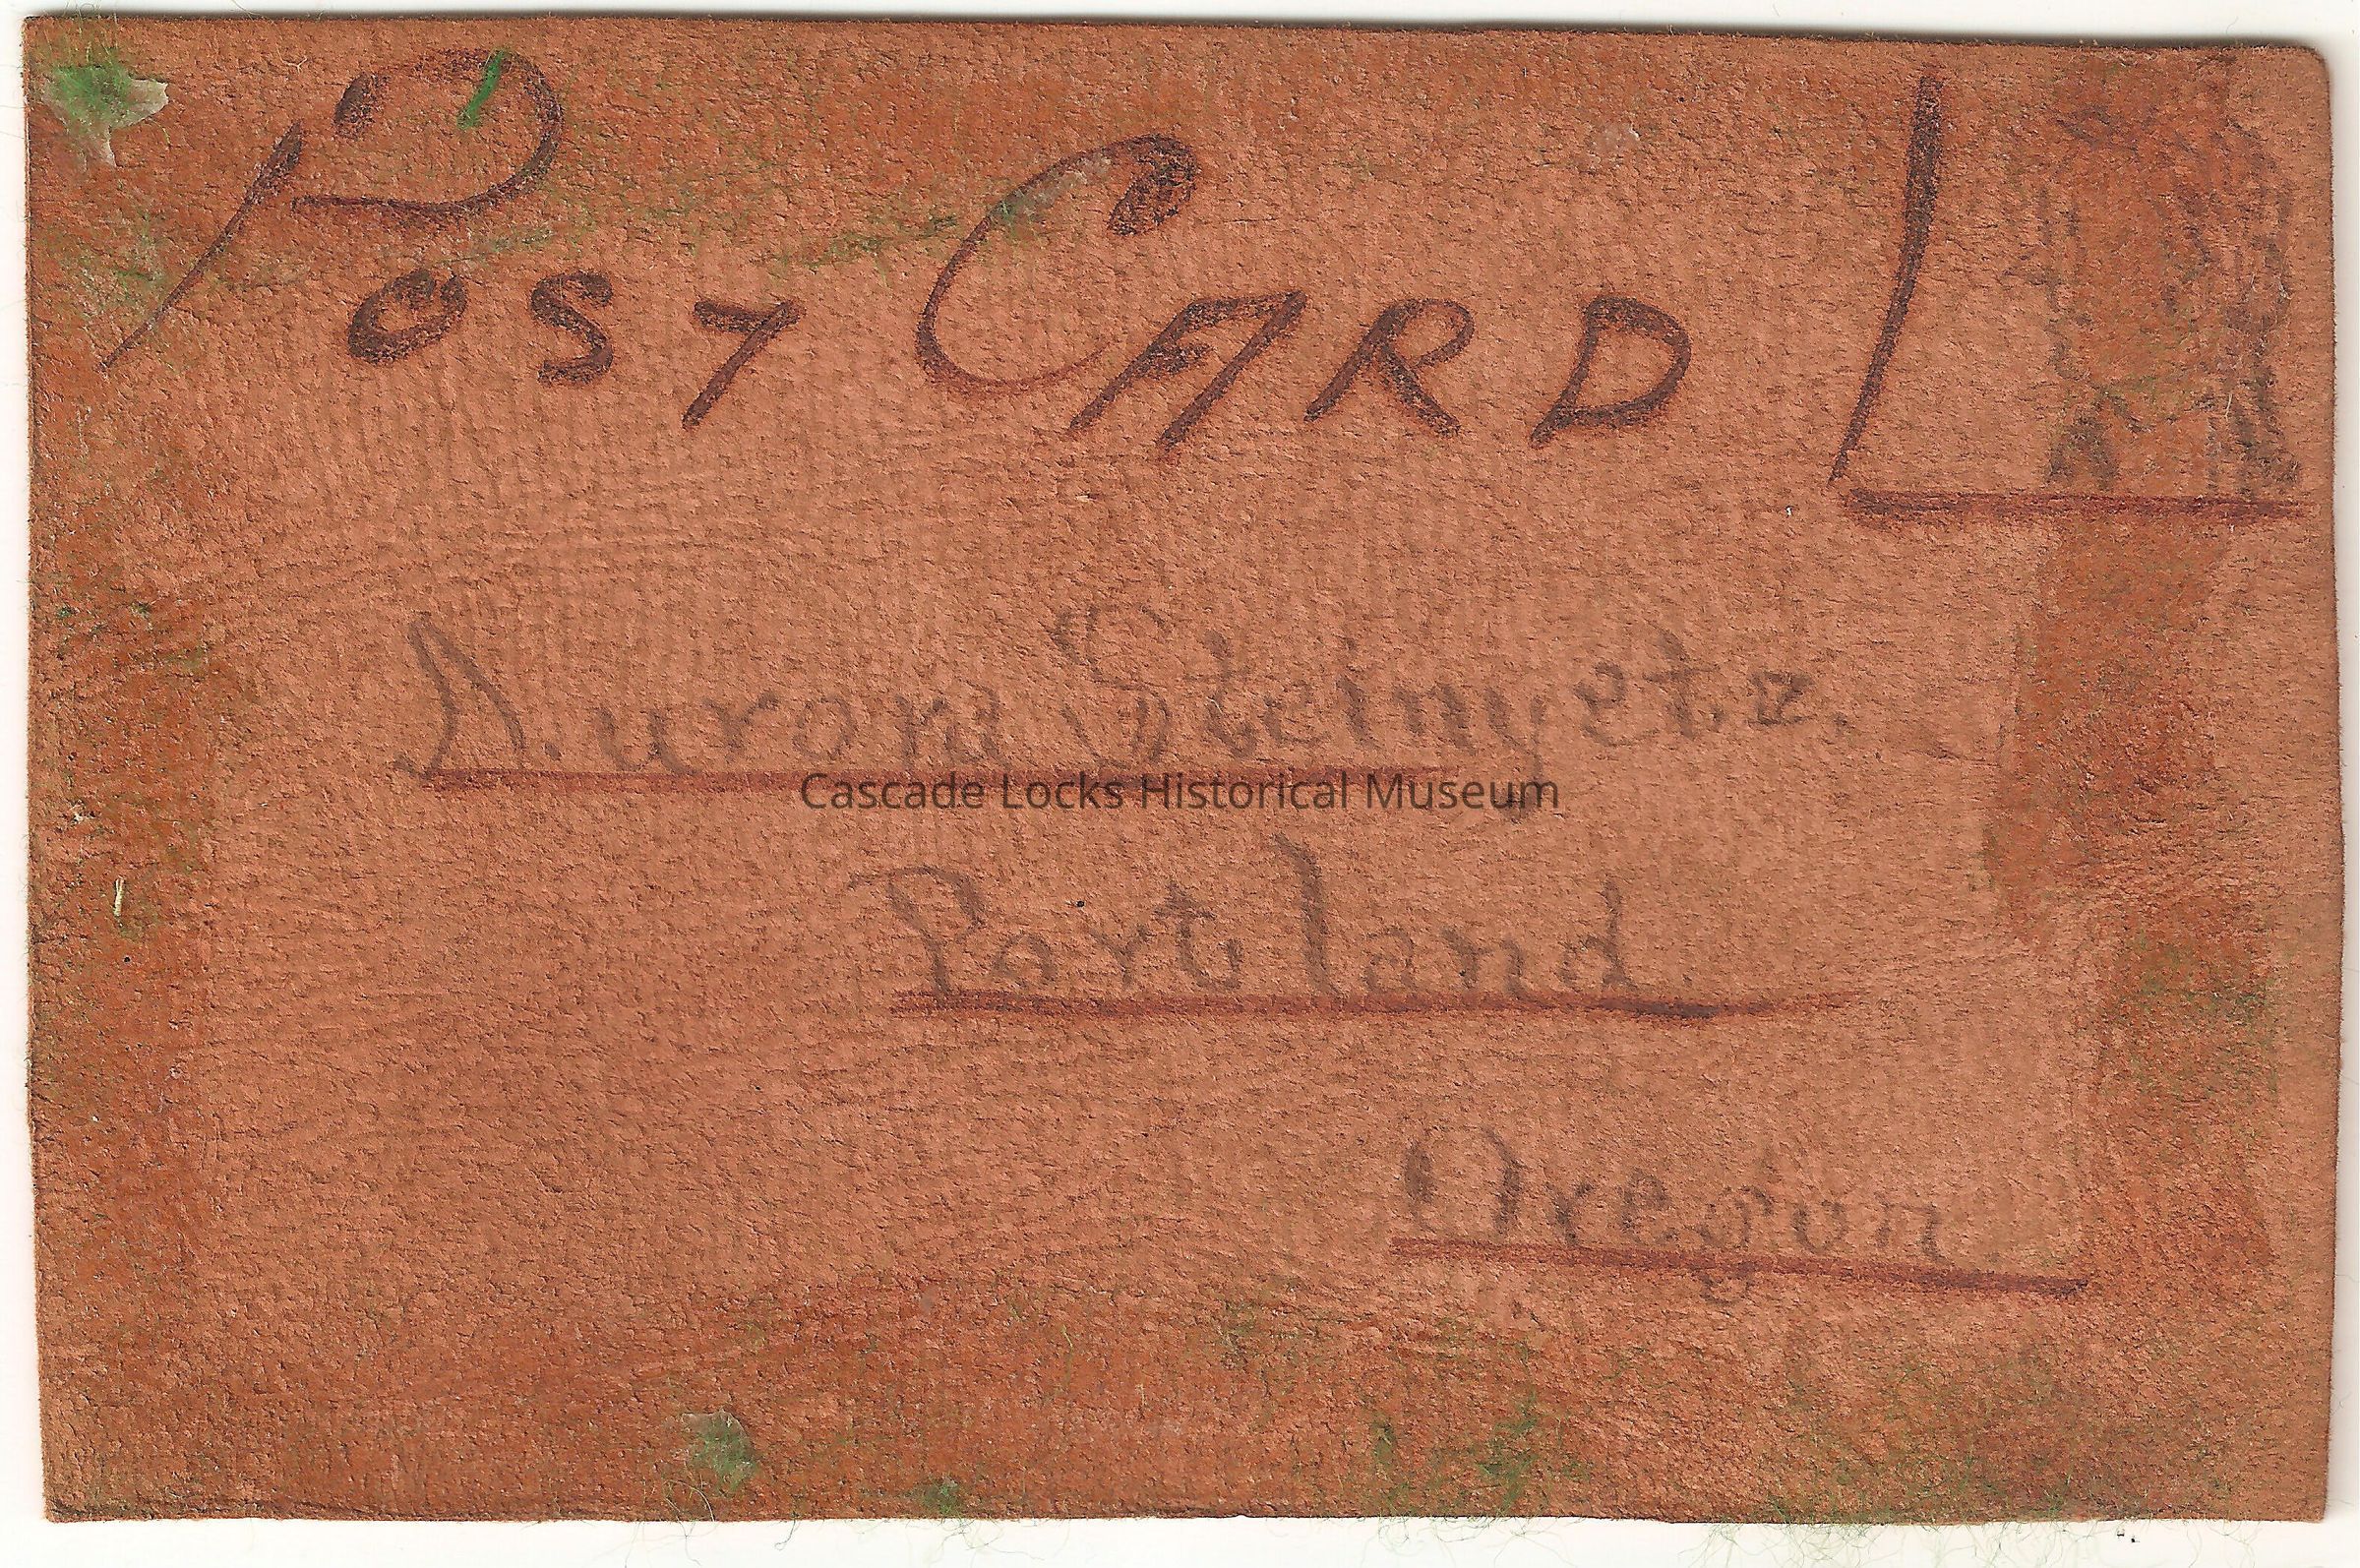 POST CARD
Aurora Steingetz.
Cascade Locks Historical Museum
Portland.
Oregon